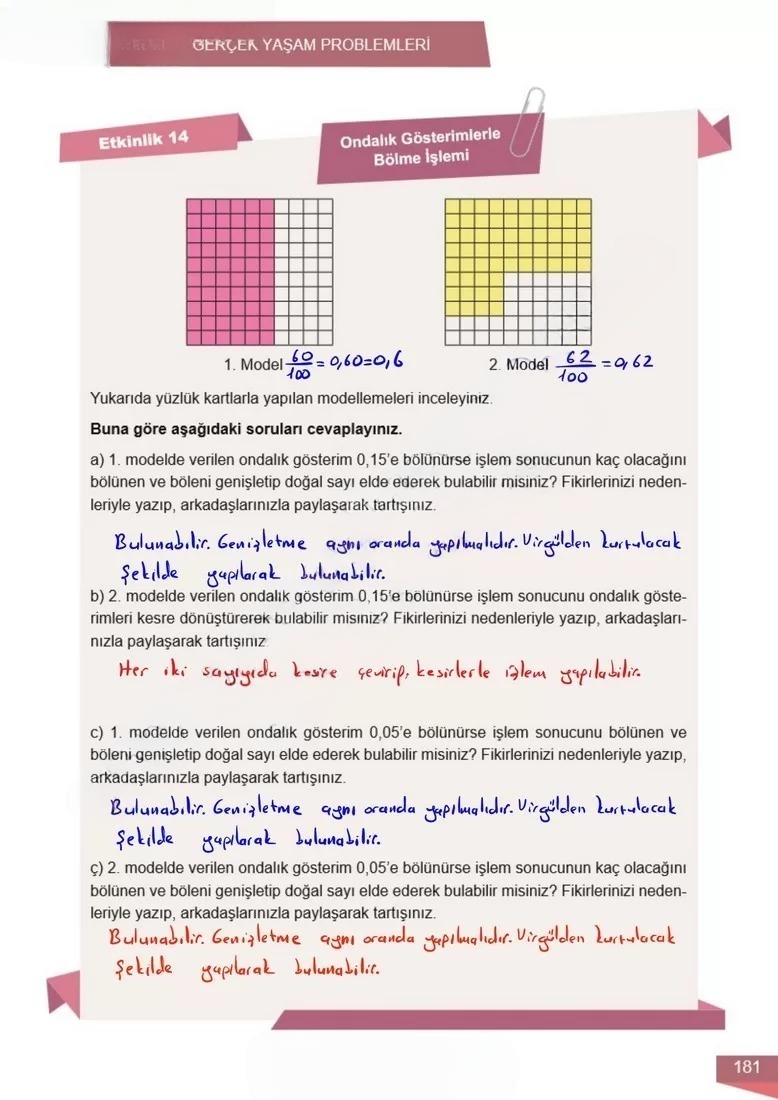 GERÇEK YAŞAM PROBLEMLERİ
Etkinlik 14
Ondalık Gösterimlerle
Bölme İşlemi
1. Model 60/100 = 0,60=0,6
2. Model 62/100 = 0,62
Yukarıda yüzlük kartlarla yapılan modellemeleri inceleyiniz.
Buna göre aşağıdaki soruları cevaplayınız.
a) 1. modelde verilen ondalık gösterim 0,15'e bölünürse işlem sonucunun kaç olacağını
bölünen ve böleni genişletip doğal sayı elde ederek bulabilir misiniz? Fikirlerinizi neden-
leriyle yazıp, arkadaşlarınızla paylaşarak tartışınız.
Bulunabilir. Genişletme aynı oranda yapılmalıdır. Virgülden kurtulacak
şekilde yapılarak bulunabilir.
b) 2. modelde verilen ondalık gösterim 0,15'e bölünürse işlem sonucunu ondalık göste-
rimleri kesre dönüştürerek bulabilir misiniz? Fikirlerinizi nedenleriyle yazıp, arkadaşları-
nızla paylaşarak tartışınız
Her iki sayıyıda kesire çevirip, kesirlerle işlem yapılabilir.
c) 1. modelde verilen ondalık gösterim 0,05'e bölünürse işlem sonucunu bölünen ve
böleni genişletip doğal sayı elde ederek bulabilir misiniz? Fikirlerinizi nedenleriyle yazıp,
arkadaşlarınızla paylaşarak tartışınız.
Bulunabilir. Genişletme aynı oranda yapılmalıdır. Virgülden kurtulacak
şekilde yapılarak bulunabilir.
ç) 2. modelde verilen ondalık gösterim 0,05'e bölünürse işlem sonucunun kaç olacağını
bölünen ve böleni genişletip doğal sayı elde ederek bulabilir misiniz? Fikirlerinizi neden-
leriyle yazıp, arkadaşlarınızla paylaşarak tartışınız.
Bulunabilir. Genişletme aynı oranda yapılmalıdır. Virgülden kurtulacak
şekilde yapılarak bulunabilir.
181